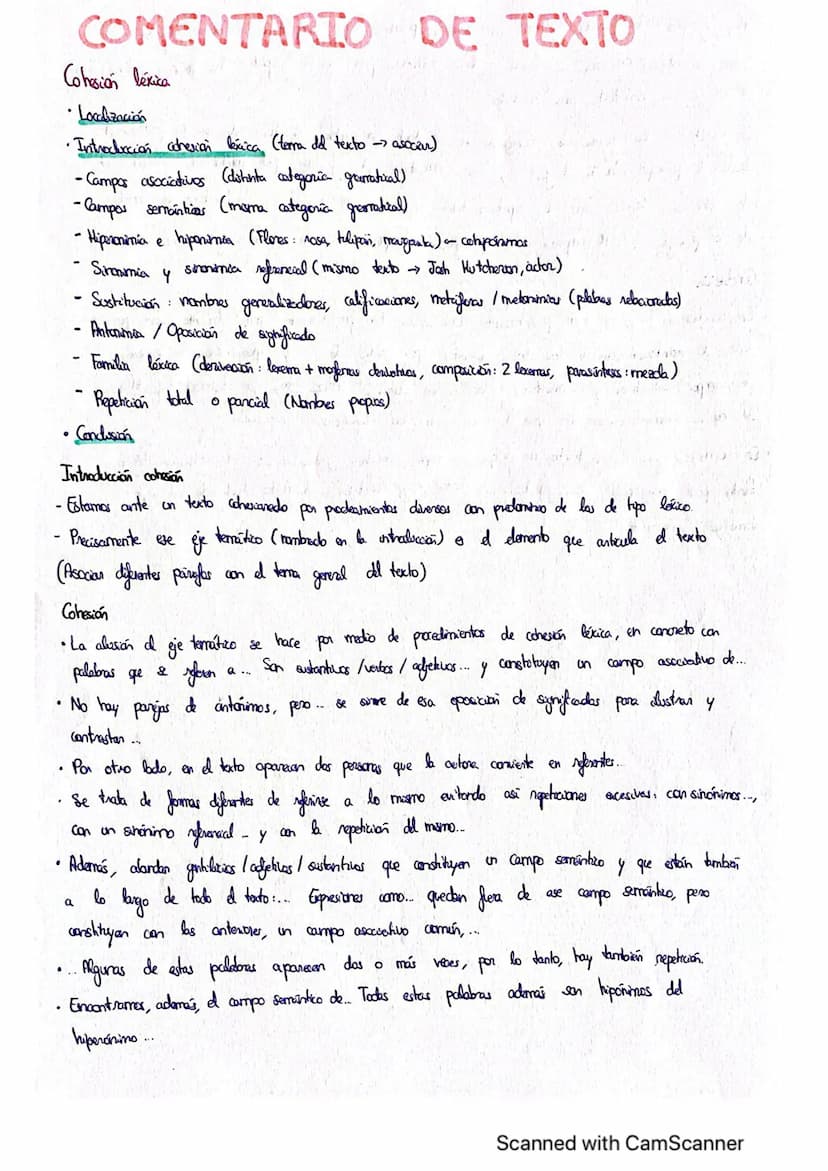 COMENTARIO DE TEXTO
Cohesión léxica
· Localización
· Introducción cohesión léxica (tema del texto → asociar)
- Campos asociativos (distinta categoría gramatical)
- Campos semánticos (misma categoría gramatical)
- Hiperonimia e hiponimia (Flores: rosa, tulipán, margarita) - cohipónimos
- Sinonimia y sinonimia referencial (mismo texto → Josh Hutcherson, actor)
- Sustitución: nombres generalizadores, calificaciones, metáforas / metonimias (palabras relacionadas)
- Antonimia / Oposición de significado
- Familia léxica (derivación: lexema + morfemas derivativos, composición: 2 lexemas, parasíntesis: mezcla)
- Repetición total o parcial (Nombres propios)
· Conclusión
Introducción cohesión
- Estamos ante un texto cohesionado por procedimientos diversos con predominio de los de tipo léxico.
- Precisamente ese eje temático (nombrado en la introducción) es el elemento que articula el texto
(Asociar diferentes párrafos con el tema general del texto)
Cohesión
· La alusión al eje temático se hace por medio de procedimientos de cohesión léxica, en concreto con
palabras que se refieren a ... Son sustantivos / verbos / adjetivos ... y constituyen un campo asociativo de...
· No hay parejas de antónimos, pero ... se sirve de esa oposición de significados para ilustrar y
contrastar ...
· Por otro lado, en el texto aparecen dos personas que la autora convierte en referentes...
· Se trata de formas diferentes de referirse a lo mismo evitando así repeticiones excesivas, con sinónimos ...,
con un sinónimo referencial - y con la repetición del mismo...
· Además, abundan gentilicios / adjetivos / sustantivos que constituyen un campo semántico y que están también
a lo largo de todo el texto:... Expresiones como... quedan fuera de ese campo semántico, pero
constituyen con los anteriores, un campo asociativo común, ...
· .. Algunas de estas palabras aparecen dos o más veces, por lo tanto, hay también repetición.
· Encontramos, además, el campo semántico de... Todas estas palabras además son hipónimos del
hiperónimo ...
Scanned with CamScanner